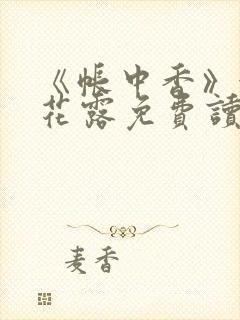 《帳中香》
花露免費讀
麦香